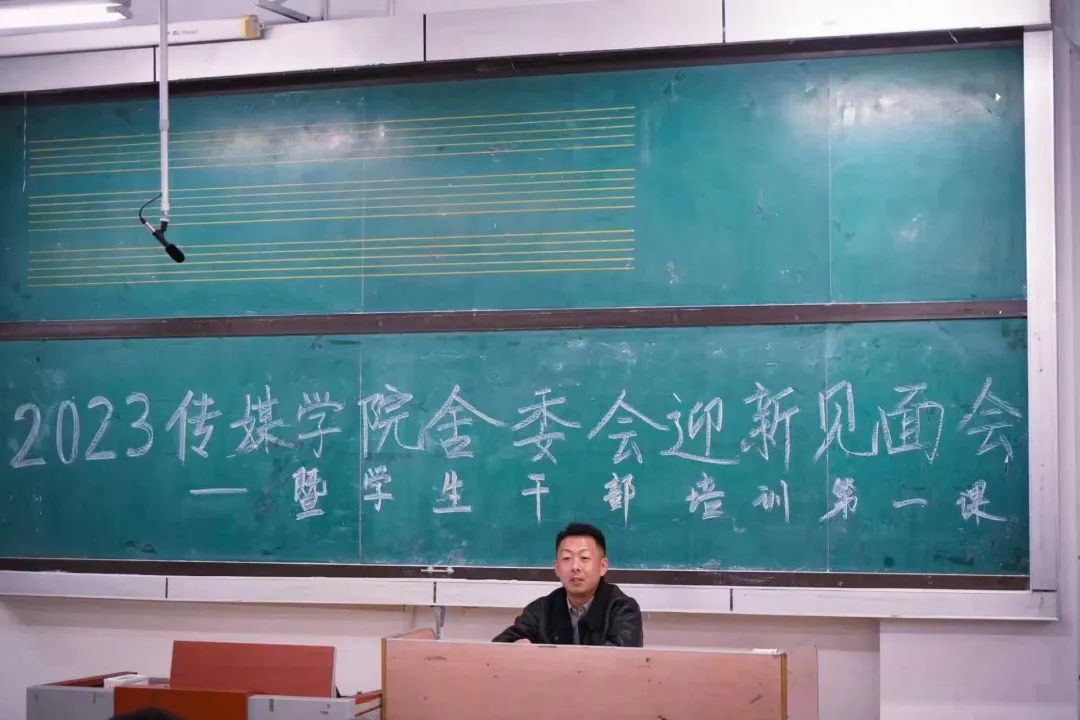 2023传媒学院舍委会迎新见面会
—暨学生干部培训第一课